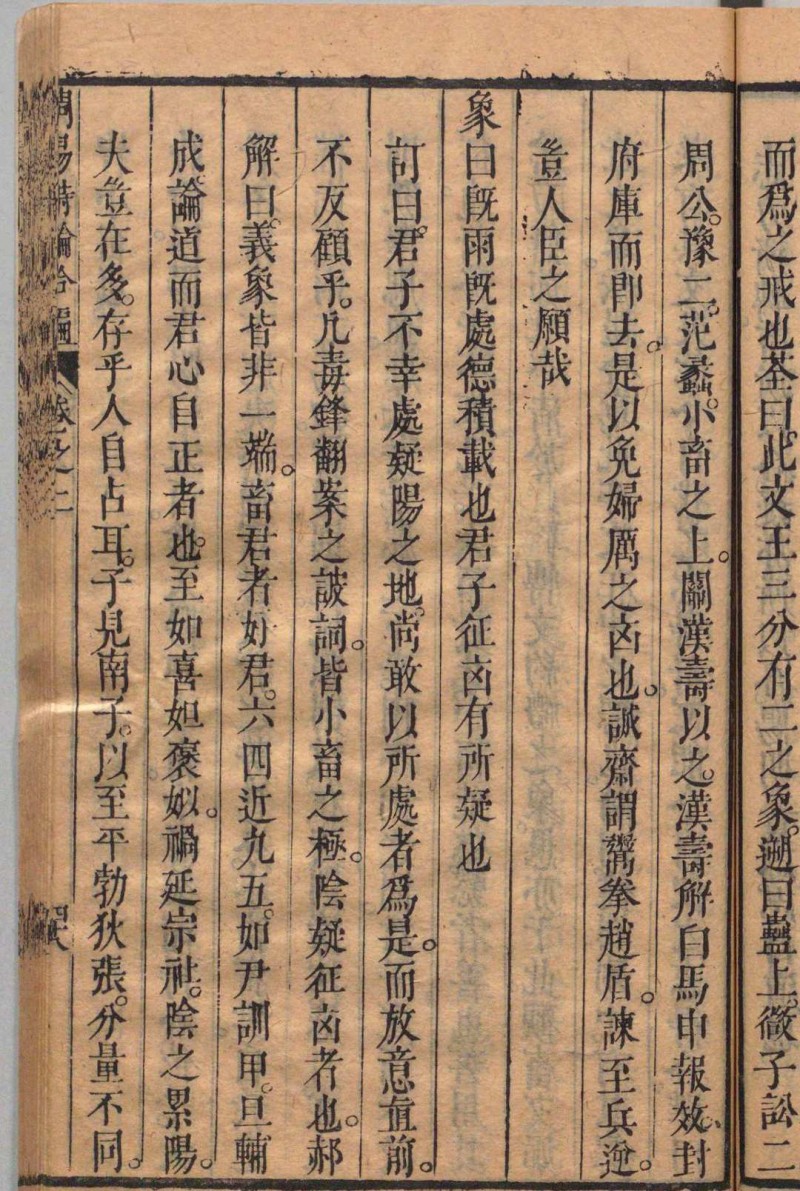 而爲之戒也荃曰此文王三分有二之象遡曰蠱上微子訟二
周公豫二范蠡小畜之上關漢壽以之漢壽解白馬申報效封
府庫而卽去是以免婦厲之凶也誠齋謂鬻拳趙盾諫至兵逆
豈人臣之願哉
象曰旣雨旣處德積載也君子征凶有所疑也
訂曰君子不幸處疑陽之地尚敢以所處者爲是而放意直前
不反顧乎凡毒鋒翻案之詖詞皆小畜之極陰疑征凶者也郝
解曰義象皆非一端畜君者好君六四近九五如尹訓甲旦輔
成論道而君心自正者也至如喜妲褒姒禍延宗社陰之累陽
夫豈在多存乎人自占耳子見南子以至平勃狄張分量不同
周易時論合編 卷之二